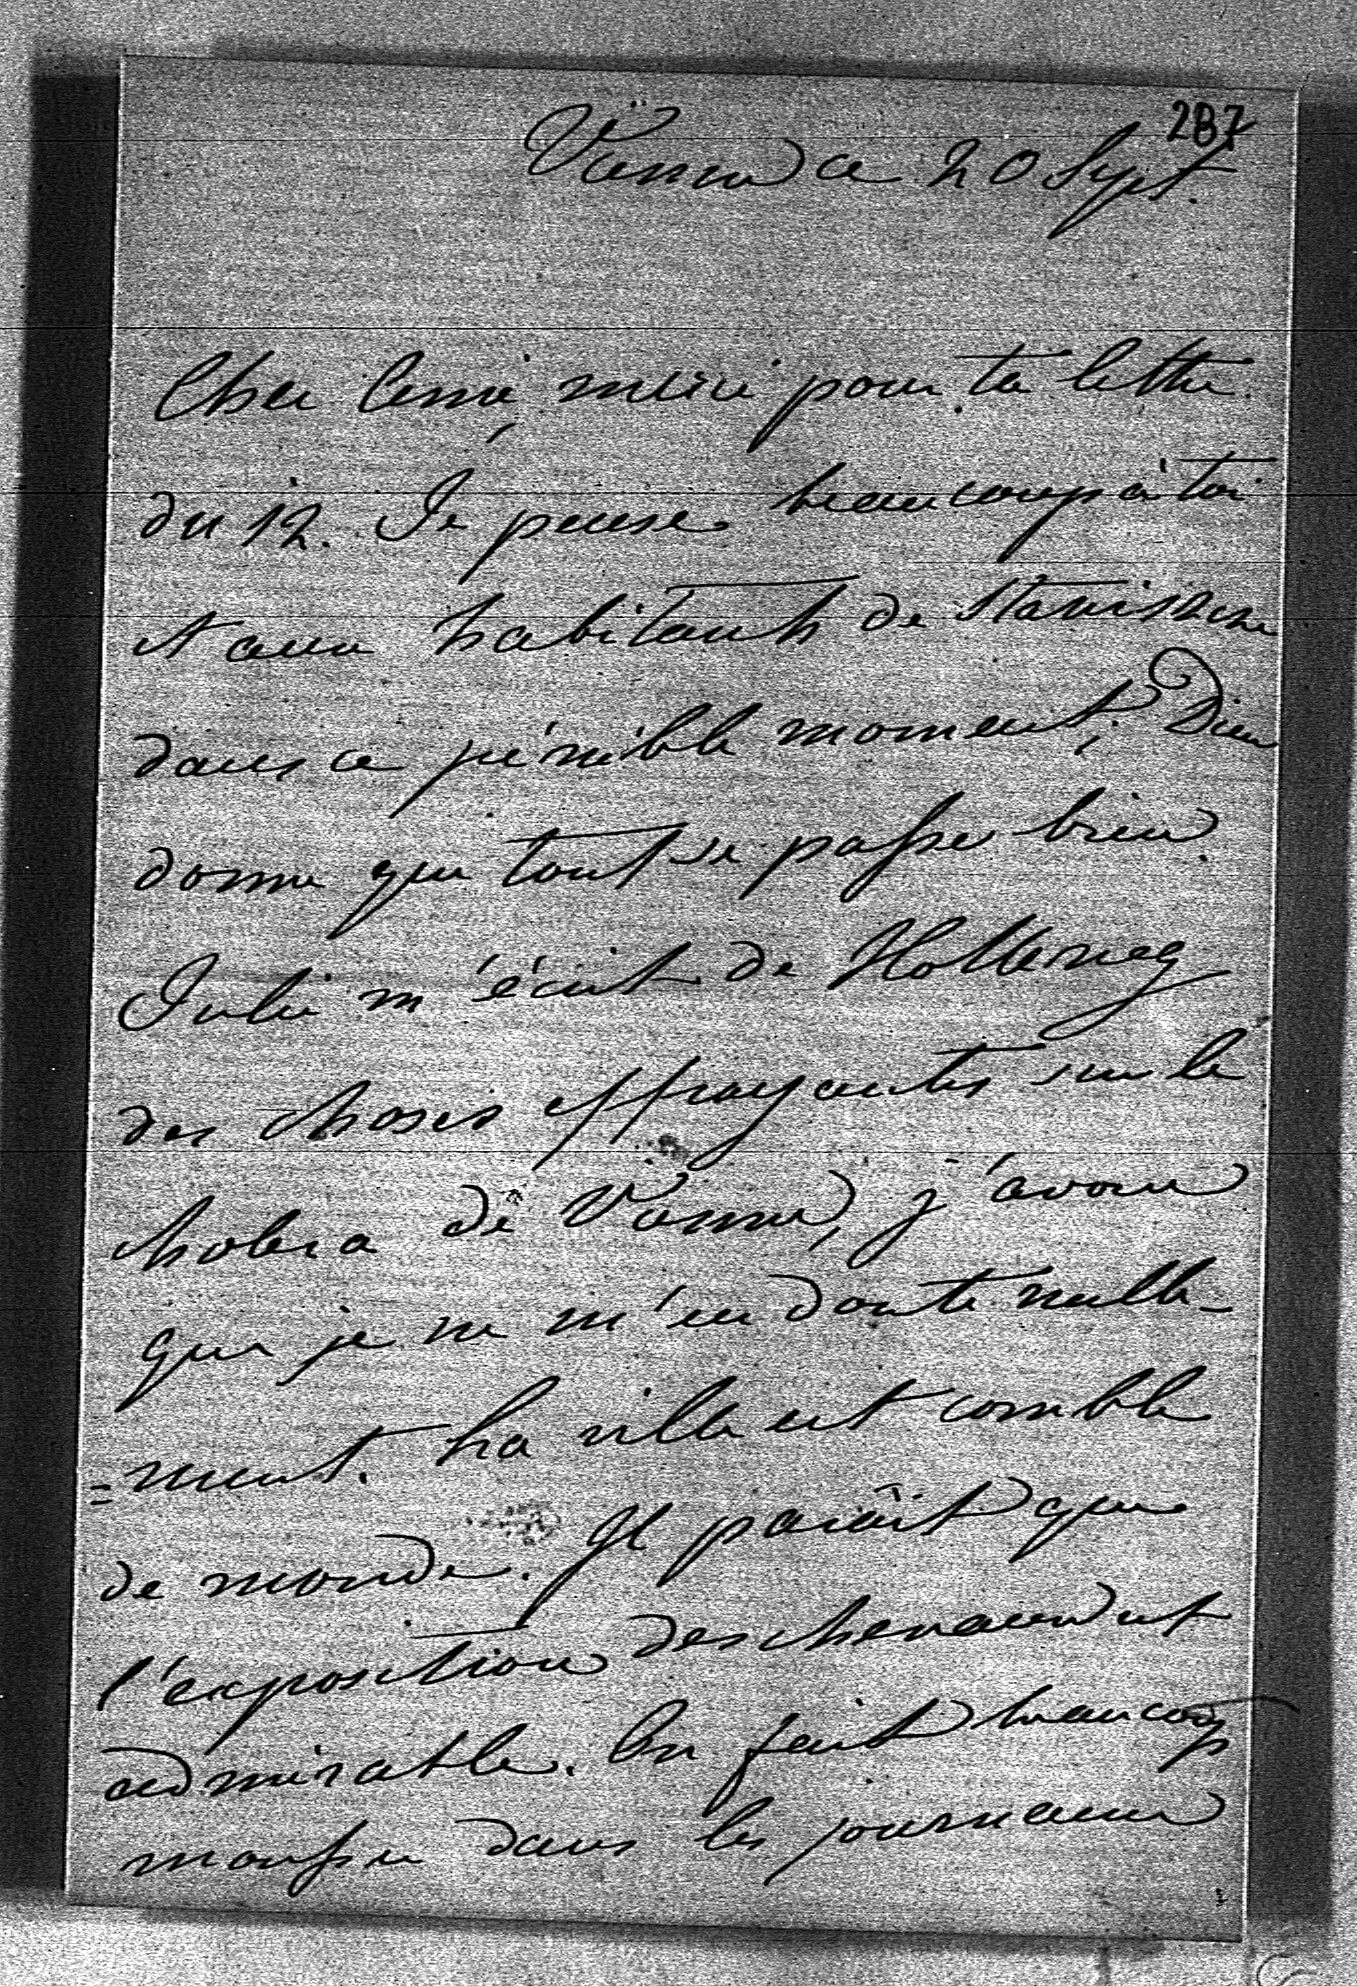 287
Vienne ce 20 Sept.
Cher ami, merci pour ta lettre
du 12. Je pense beaucoup à toi
et aux habitants de
dans ce pénible moment; Dieu
donne que tout se passe bien.
Julie m'écrit de Holleneg
des choses effrayantes sur le
cholera de Vienne, j'avoue
que je ne m'en doute nulle-
=ment. La ville est comble
de monde. Il paraît que
l'exposition des chevaux est
admirable. On fait beaucoup
mousser dans les journaux